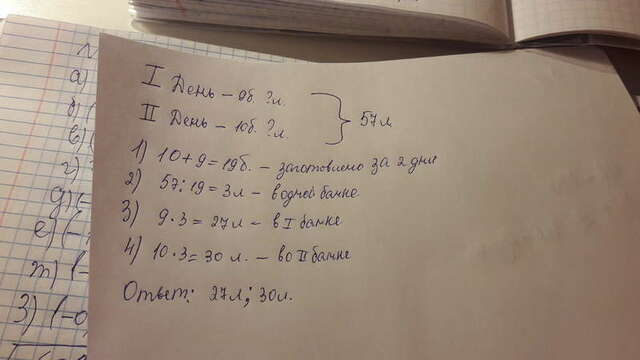 I День – 9б ?л
II День – 10б ?л
} 57 л
1) 10 + 9 = 19б. – заготовлено за 2 дня
2) 57 : 19 = 3 л – в одной банке
3) 9 · 3 = 27 л – в I банке
4) 10 · 3 = 30 л. – во II банке
Ответ: 27л; 30л.
а)
б)
в)
г)
д)
е)
3)